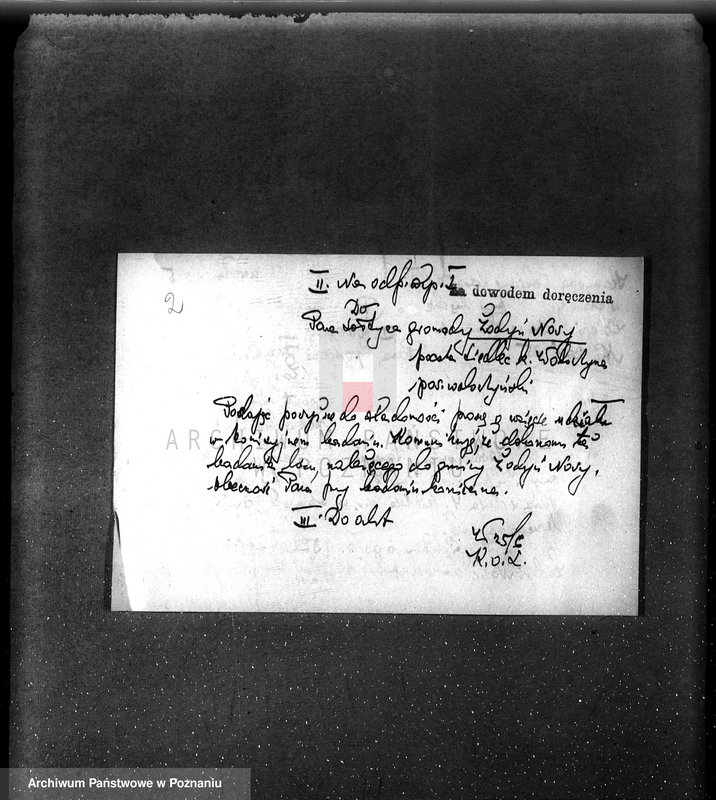 2
II. Na odpis wyp. I
za dowodem doręczenia
Do
Pana Sołtysa gromady Żodyń Nowy
poczta Siedlec k. Wolsztyna
pow. wolsztyński
Podając powyższe do wiadomości proszę o wzięcie udziału
w komisyjnem badaniu. że dokonam też
badania lasu, należącego do gminy Żodyń Nowy,
obecność Pana przy badaniu konieczna.
III. Do akt
W
K.O.L.
ARCHIWUM PAŃSTWOWE
W POZNANIU
Archiwum Państwowe w Poznaniu